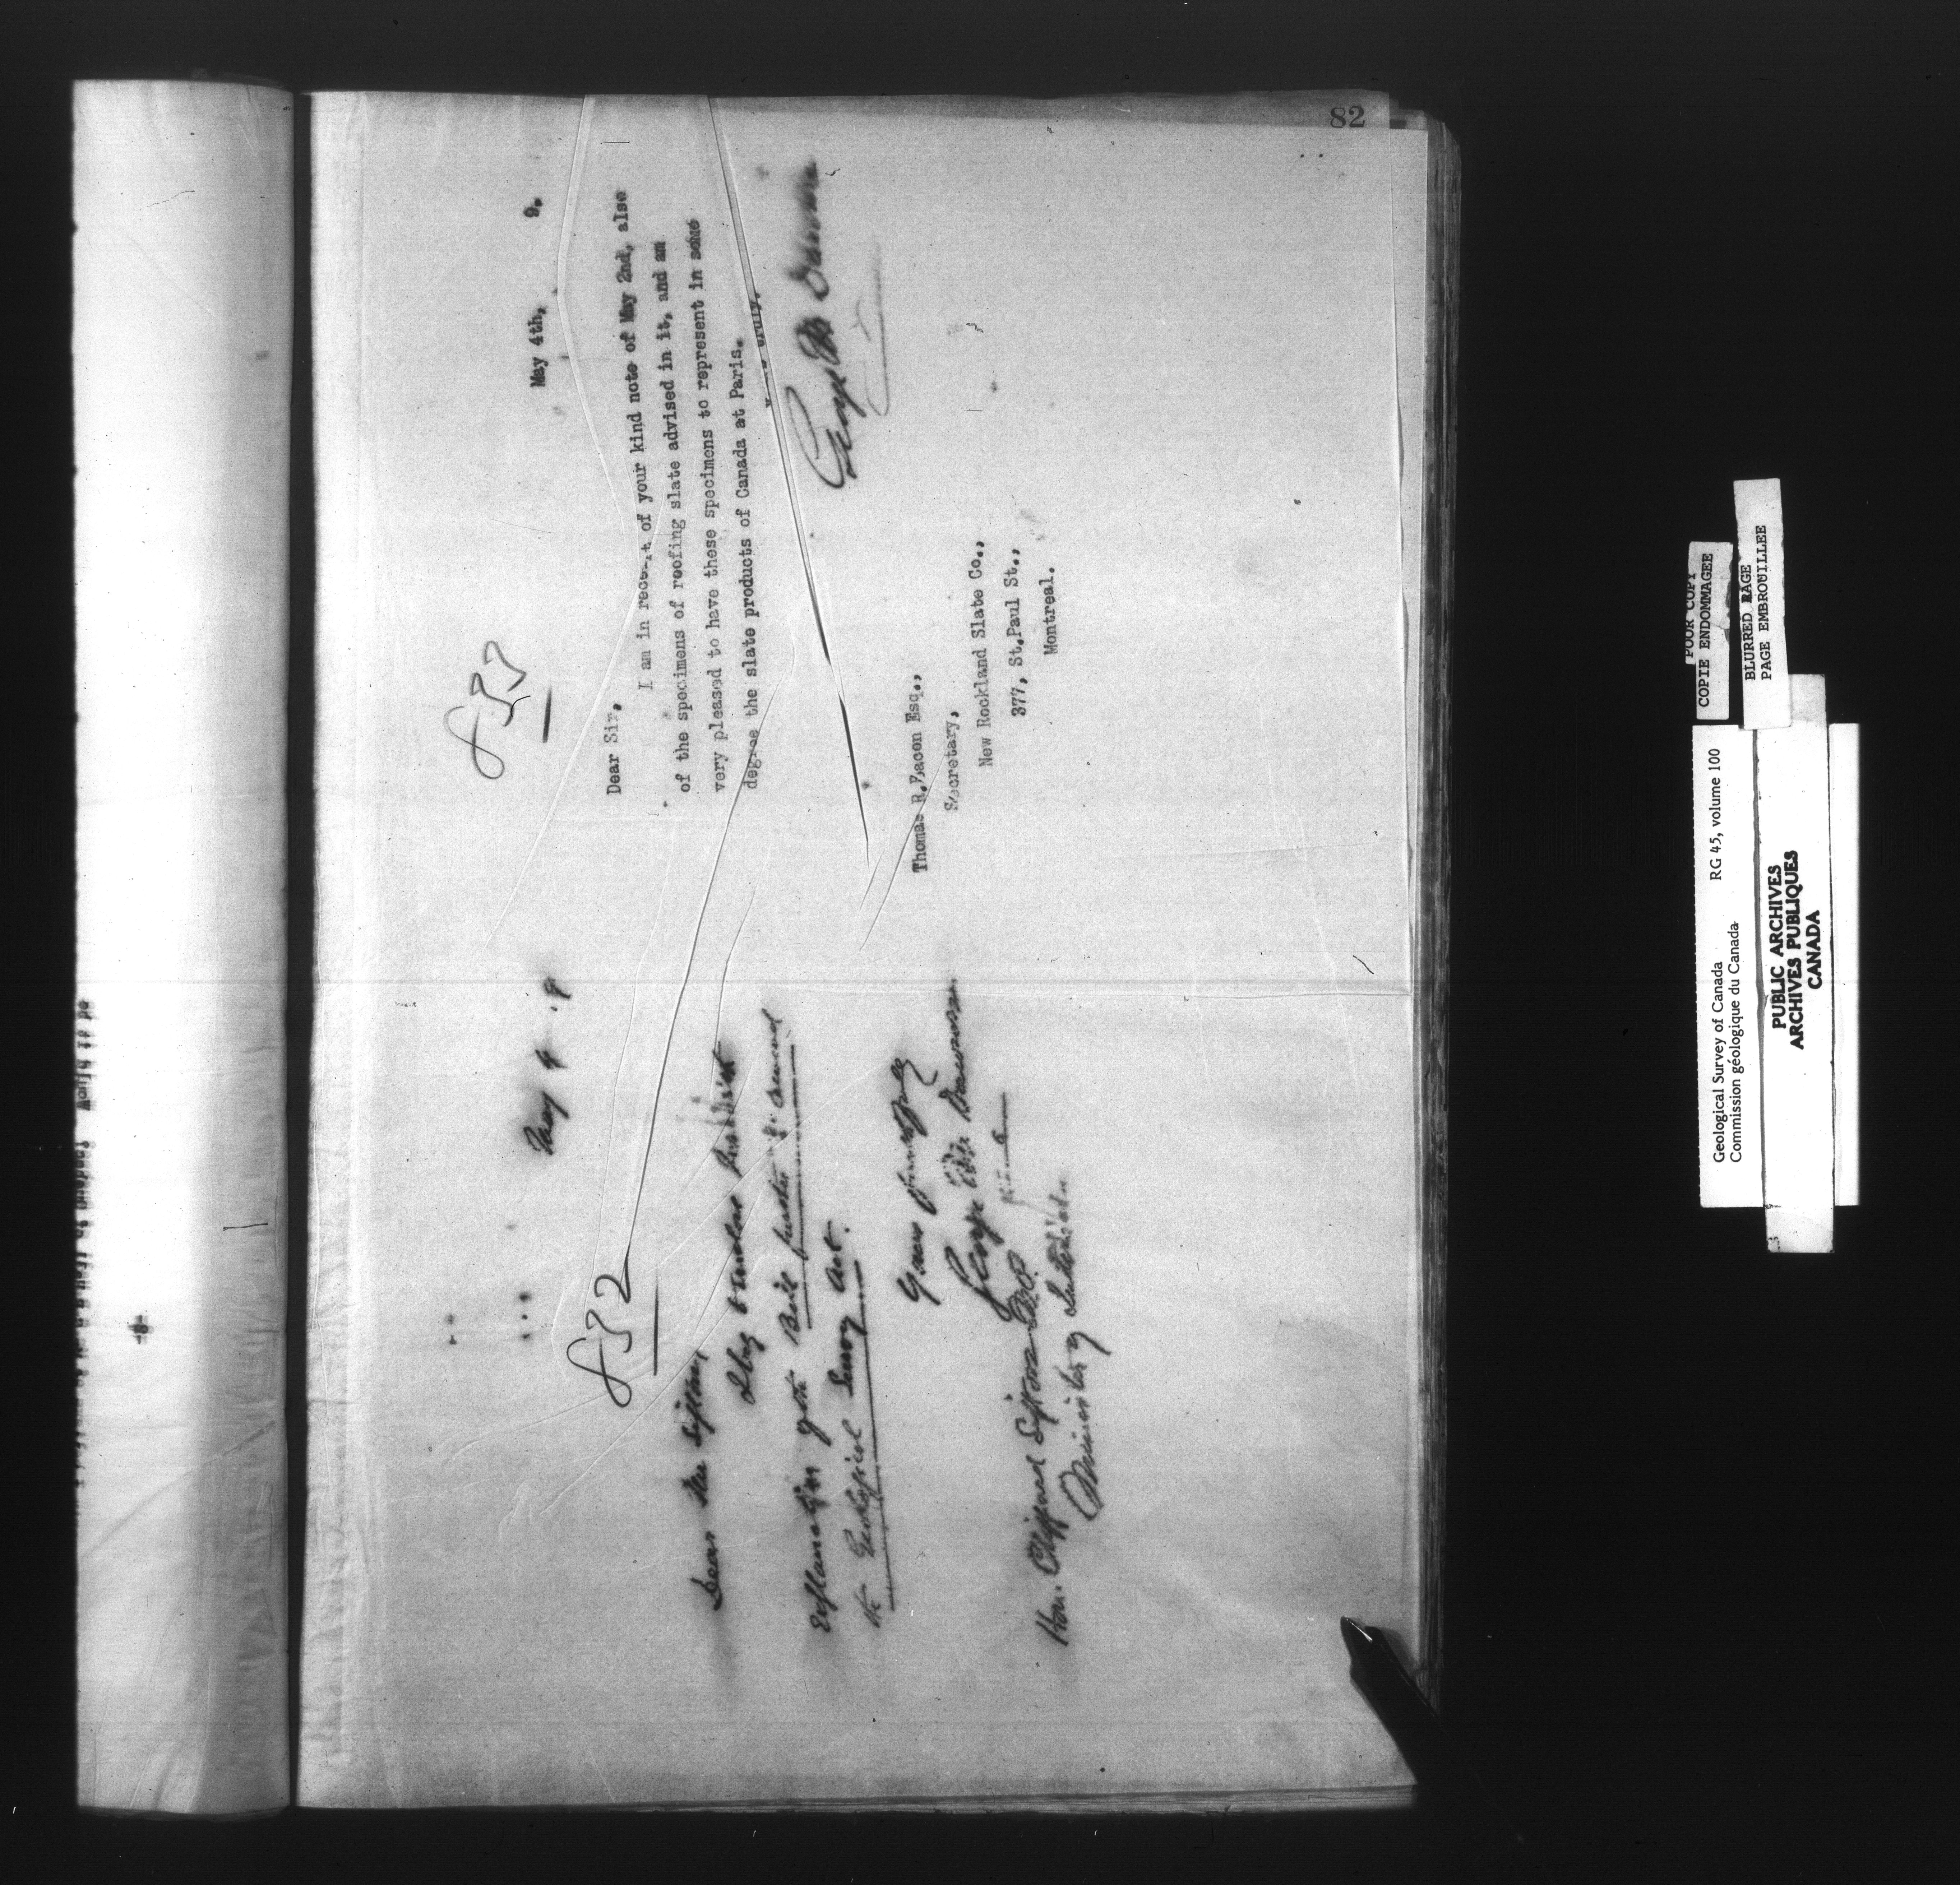 82
832
May 4 9
Dear Mr Sifton,
I beg to enclose
Explanation of the Bill further to amend
the Geological Survey Act.
Yours faithfully
George M. Dawson
Hon. Clifford Sifton
Minister of Interior
833
May 4th, 9.
Dear Sir,
I am in receipt of your kind note of May 2nd, also
of the specimens of roofing slate advised in it, and am
very pleased to have these specimens to represent in some
degree the slate products of Canada at Paris.
truly,
George M Dawson
Thomas R. Bacon Esq.,
Secretary,
New Rockland Slate Co.,
377, St.Paul St.,
Montreal.
POOR COPY
COPIE ENDOMMAGEE
BLURRED PAGE
PAGE EMBROUILLEE
Geological Survey of Canada RG 45, volume 100
Commission géologique du Canada
PUBLIC ARCHIVES
ARCHIVES PUBLIQUES
CANADA